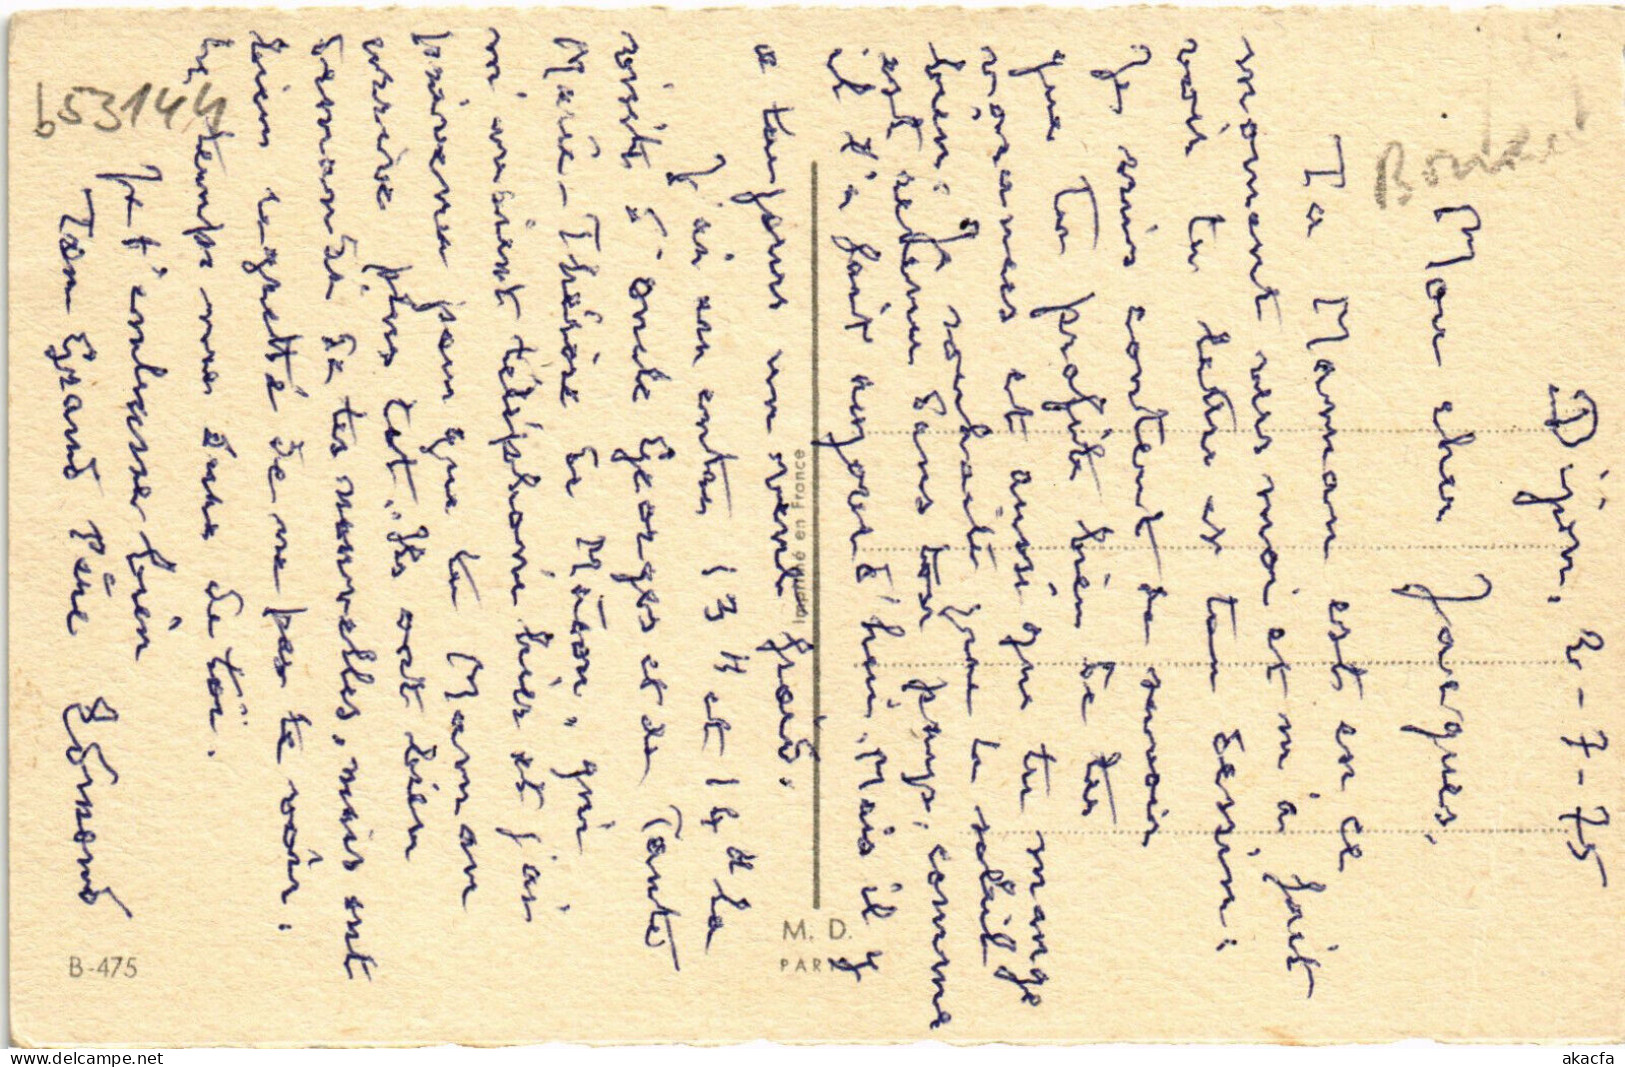 Dijon, 2-7-75
Mon cher Jacques,
Ta Maman est en ce
moment vers moi et m'a fait
voir ta lettre et ton dessin:
Je suis content de savoir
que tu profites bien de tes
vacances et aussi que tu manges
bien. Je souhaite que le soleil
est retenu dans ton pays, comme
il l'a fait aujourd'hui. Mais il y
a toujours un vent froid.
J'ai eu entre 13 H et 14 H la
visite d'oncle Georges et de Tante
Marie-Thérèse de Mâcon, qui
m'avaient téléphoné hier et j'ai
prévenu pour que ta Maman
arrive plus tôt. Ils ont bien
demandé de tes nouvelles, mais ont
bien regretté de ne pas te voir.
Le temps me dure de toi.
Je t'embrasse bien
Ton Grand Père Edmond
b53144
Imprimé en France
M. D.
PARIS
B-475
akpool.de
akacfa